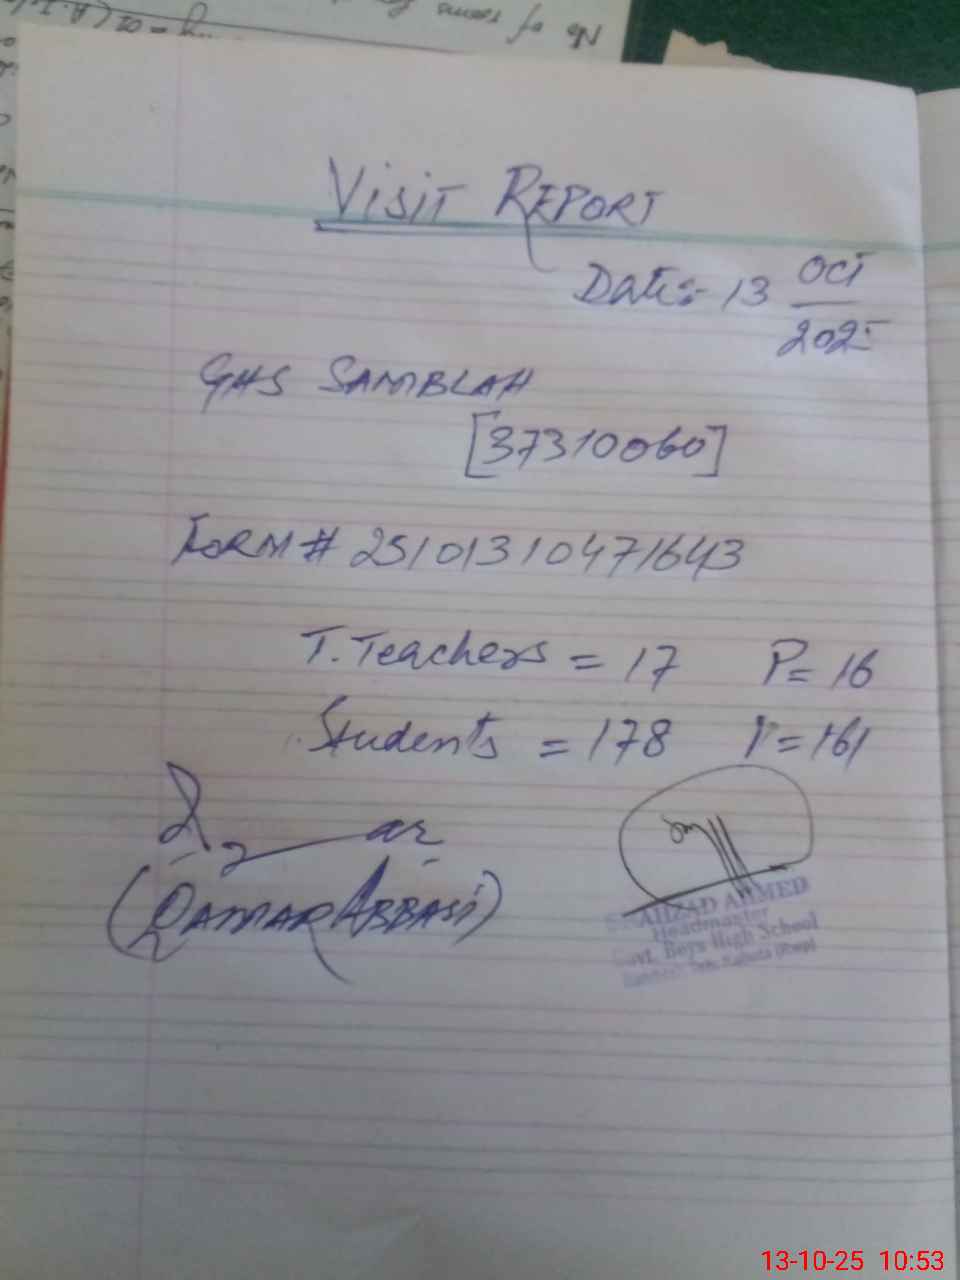 No of rooms
VISIT REPORT
Date:- 13 Oct
2025
GHS SAMBLAH
[37310060]
FORM # 25101310471643
T. Teachers = 17 P= 16
Students = 178 P= 161
(QAMAR ABBASI)
AHZAD AHMED
Headmaster
Govt. Boys High School
13-10-25 10:53